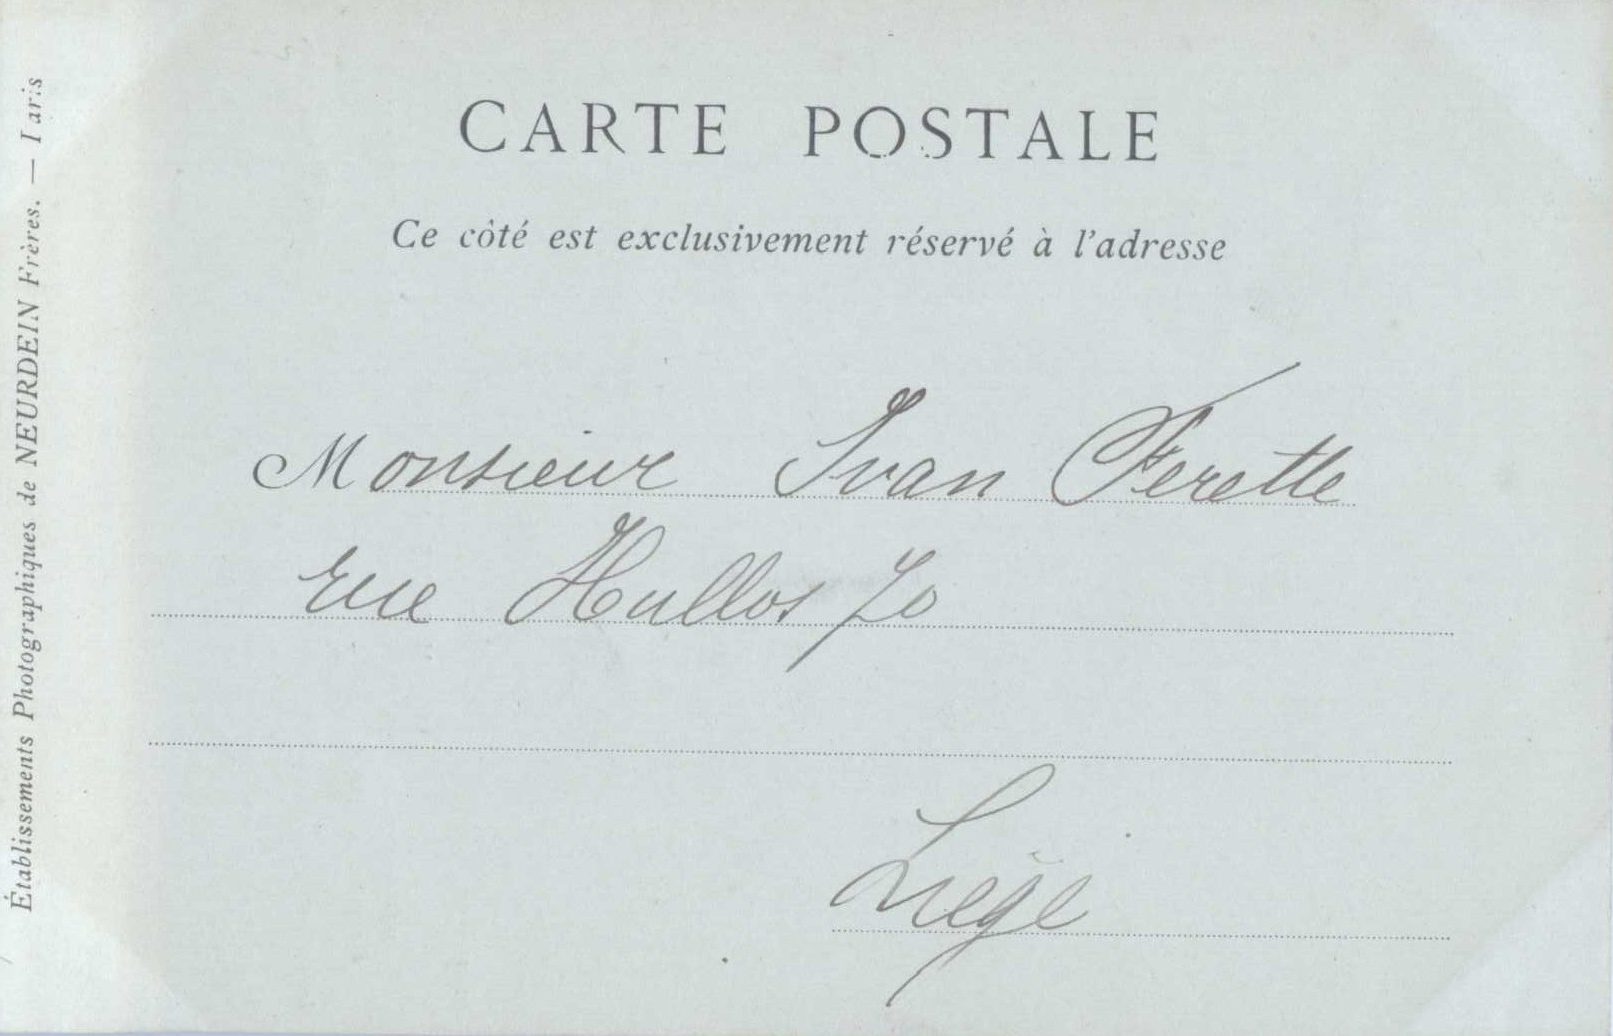 CARTE POSTALE
Ce côté est exclusivement réservé à l'adresse
Monsieur Ivan Ferette
rue Hullos 70
Liége
Établissements Photographiques de NEURDEIN Frères. — Paris